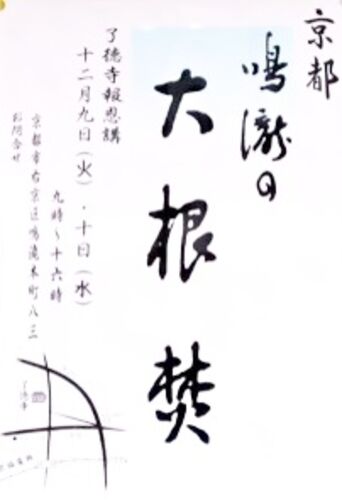 京都
鳴瀧の
大根焚
了徳寺報恩講
十二月九日(火)・十日(水)
九時〜十六時
京都市右京区鳴滝本町八三
お問合せ
了徳寺